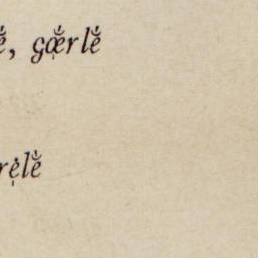 ĕ̍, gœ̣̆̍rlĕ̍
rẹ̍lĕ̍